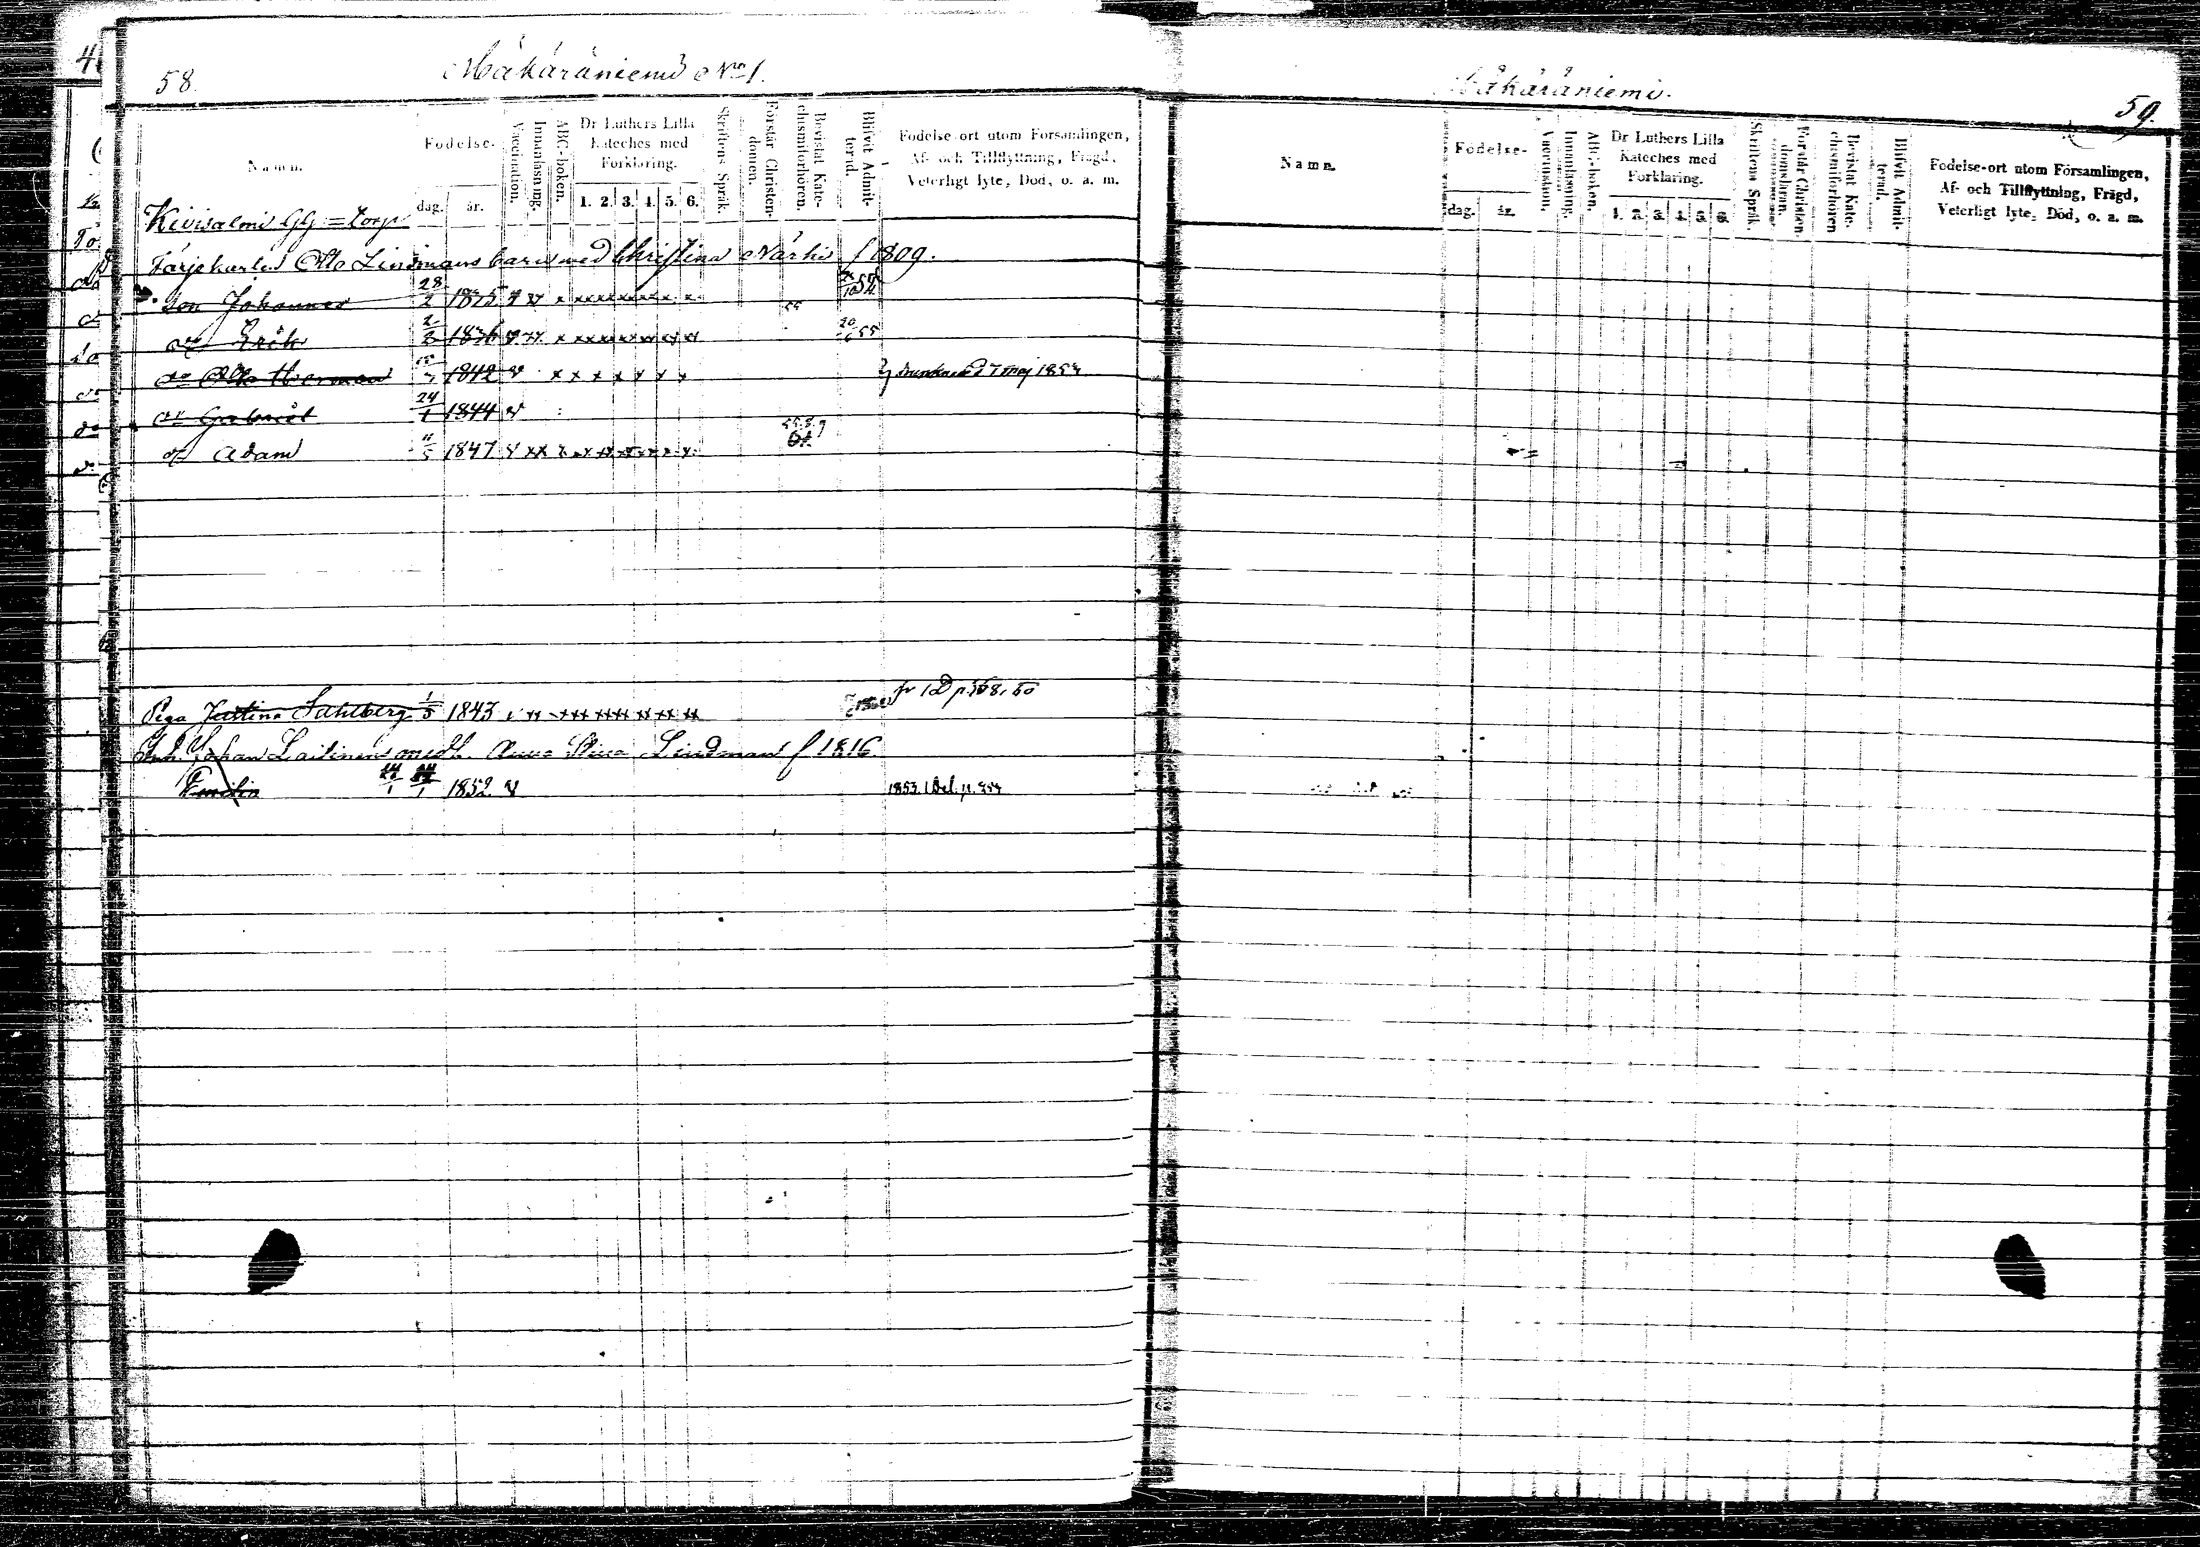 58.
Mäkäräniemi No 1.
Namn.
Födelse-
dag. år.
Vaccination.
Innanläsning.
ABC-boken.
Dr Luthers Lilla
Kateches med
Förklaring.
1. 2. 3. 4. 5. 6.
Skriftens Språk.
Förstår Christen-
domen.
Bevistat Kate-
chismiförhören.
Blifvit Admit-
terad.
Födelse-ort utom Församlingen,
Af- och Tillflyttning, Frägd,
Veterligt lyte, Död, o. a. m.
Kivisalmi torp
Färjekarlen Otto Lindmans barn med Christina Närhi f 1809.
Son Johannes 28/2 1835 v
do Erik 1836 v 20/6 55
do Otto Herman 1842 v drunknade d 7 Maj 1854
do Gabriel 24/1 1844 v
do Adam 11/5 1847 v
Piga Justina Sahlberg 1/5 1843
Inh. Johan Laitinen med h. Anna Stina Lindman f 1816.
1852 v 1853. 1 Del. p.
Mäkäräniemi.
59.
Namn.
Födelse-
dag. år.
Vaccination.
Innanläsning.
ABC-boken.
Dr Luthers Lilla
Kateches med
Förklaring.
1. 2. 3. 4. 5. 6.
Skriftens Språk.
Förstår Christen-
domslären.
Bevistat Kate-
chismiförhören
Blifvit Admit-
terad.
Födelse-ort utom Församlingen,
Af- och Tillflyttning, Frägd,
Veterligt lyte, Död, o. a. m.